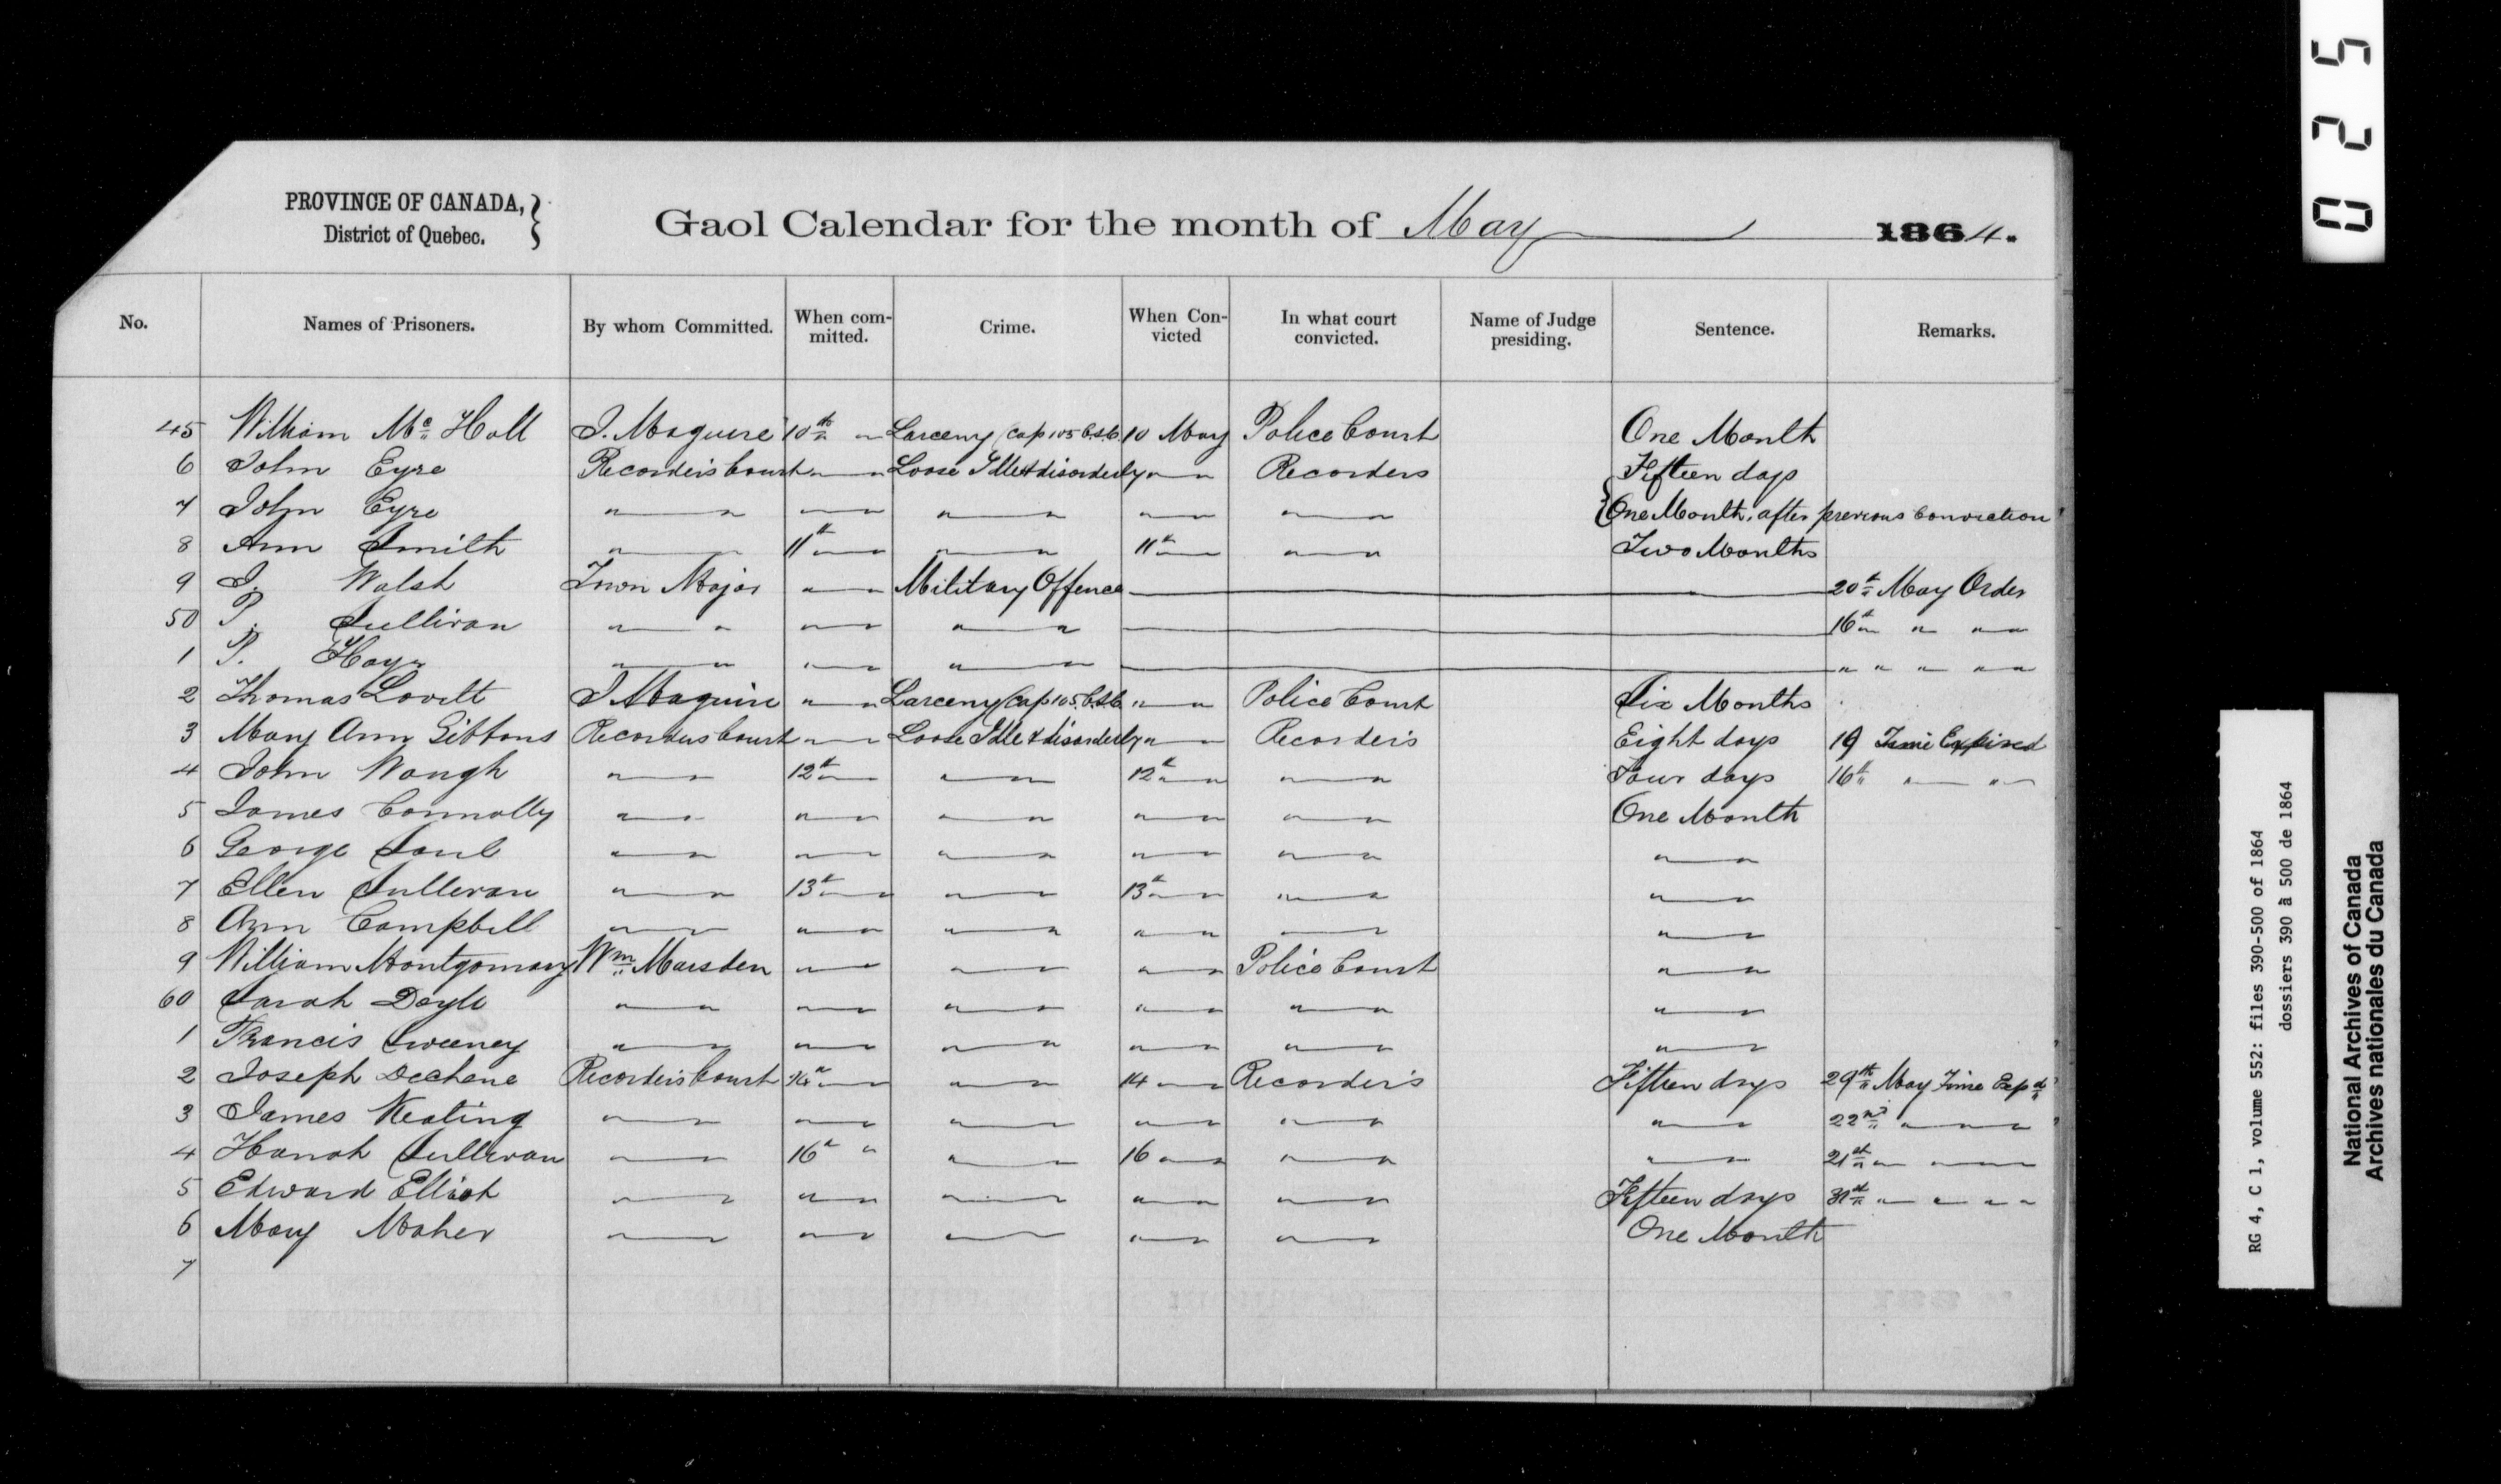 PROVINCE OF CANADA,
District of Quebec. }
Gaol Calendar for the month of May 1864.
No. Names of Prisoners. By whom Committed. When committed. Crime. When Convicted In what court convicted. Name of Judge presiding. Sentence. Remarks.
45 William Mc Hall J. Maguire 10th " Larceny Cap 105 C.S.C. 10 May Police Court One Month
6 John Eyre Recorders Court " " Loose Idle & disorderly " " Recorders Fifteen days
7 John Eyre " " " " " " " " " " { One Month, after previous conviction
8 Ann Smith " " 11th " " " 11th " " " Two Months
9 J. Walsh Town Major " " Military Offence 20th May Order
50 P. Sullivan " " " " " " 16th " " "
1 P. Hays " " " " " " " " " " "
2 Thomas Lovett J Maguire " " Larceny Cap 105. C.S.C. " " Police Court Six Months
3 Mary Ann Gibbons Recorders Court " " Loose Idle & disorderly " " Recorders Eight days 19 Time Expired
4 John Waugh " " 12th " " " 12th " " " " Four days 16th " "
5 James Connolly " " " " " " " " " " One Month
6 George " " " " " " " " " " " "
7 Ellen Sulleran " " 13th " " " 13th " " " " " "
8 Ann Campbell " " " " " " " " " " " "
9 William Montgomary Wm Marsden " " " " " " Police Court " "
60 Sarah Doyle " " " " " " " " " " " "
1 Francis Sweeney " " " " " " " " " " " "
2 Joseph Dechene Recorders Court 14th " " " 14 " Recorder's Fifteen days 29th May Time Expd
3 James Keating " " " " " " " " " " " " 22nd " " "
4 Hanah Sulleran " " 16th " " " 16 " " " " " " 21st " " "
5 Edward Elliot " " " " " " " " " " Fifteen days 31st " " " "
6 Mary Maher " " " " " " " " " " One Month
7
025
RG 4, C 1, volume 552: files 390-500 of 1864
dossiers 390 à 500 de 1864
National Archives of Canada
Archives nationales du Canada